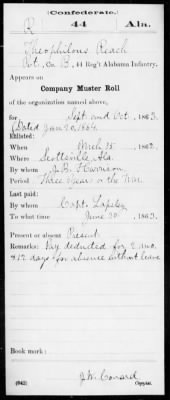 (Confederate.)
R 44 Ala.
Theophilous Reach
Pvt., Co. B, 44 Reg't Alabama Infantry.
Appears on
Company Muster Roll
of the organization named above,
for Sept and Oct, 1863.
(Dated Jan 20, 1864
Enlisted:
When Mch 15, 1862.
Where Scottsville, Ala.
By whom J. B. Harrison
Period Three years or the War
Last paid:
By whom Capt.
To what time June 30, 1863.
Present or absent Present
Remarks: Pay deducted for 2 mo.
& 12 days for absence without leave
Book mark:
J. W. Conard
(642) Copyist.